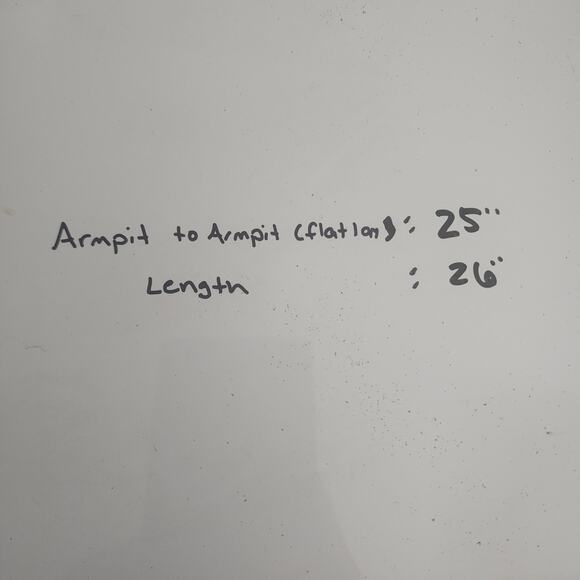 Armpit to Armpit (flatlan) : 25"
Length : 26"